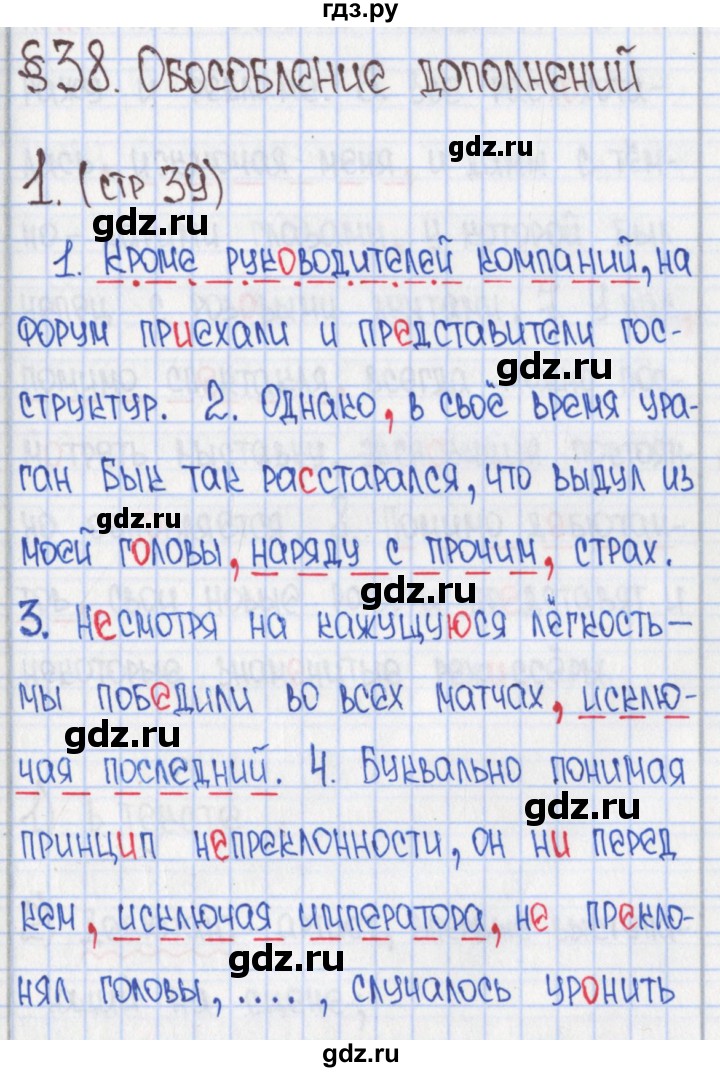 гдз.ру
§38. Обособление дополнений
gdz.ru
1. (стр 39)
gdz.ru
gdz.ru
1. Кроме руководителей компаний, на
форум приехали и представители гос-
gdz.ru
структур. 2. Однако, в своё время ура-
gdz.ru
ган Бык так расстарался, что выдул из
gdz.ru
моей головы, наряду с прочим, страх.
gdz.ru
3. Несмотря на кажущуюся лёгкость –
мы победили во всех матчах, исклю-
gdz.ru
чая последний. 4. Буквально понимая
gdz.ru
принцип непреклонности, он ни перед
кем, исключая императора, не прекло-
gdz.ru
нял головы, ...., случалось уронить
gdz.ru
gdz.ru